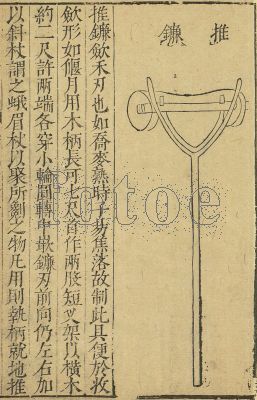 推鐮
推鐮斂禾刃也如喬麥熟時子易焦落故制此具便於收
斂形如偃月用木柄長可七尺首作兩股短叉架以橫木
約二尺許兩端各穿小輪圓轉中嵌鐮刃前向仍左右加
以斜杖謂之蛾眉杖以聚所劖之物凡用則執柄就地推
fotoe